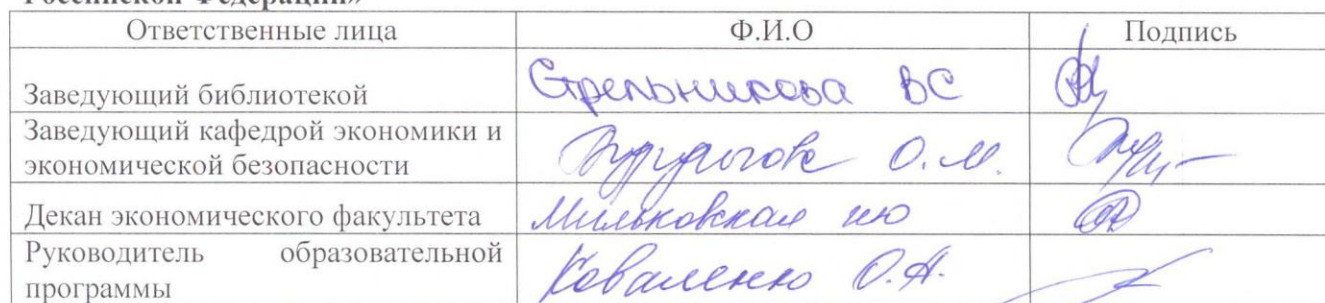 Российской Федерации»
Ответственные лица Ф.И.О Подпись
Заведующий библиотекой Стрельникова ВС
Заведующий кафедрой экономики и
экономической безопасности О.М.
Декан экономического факультета Мильковская
Руководитель образовательной
программы Коваленко О.А.